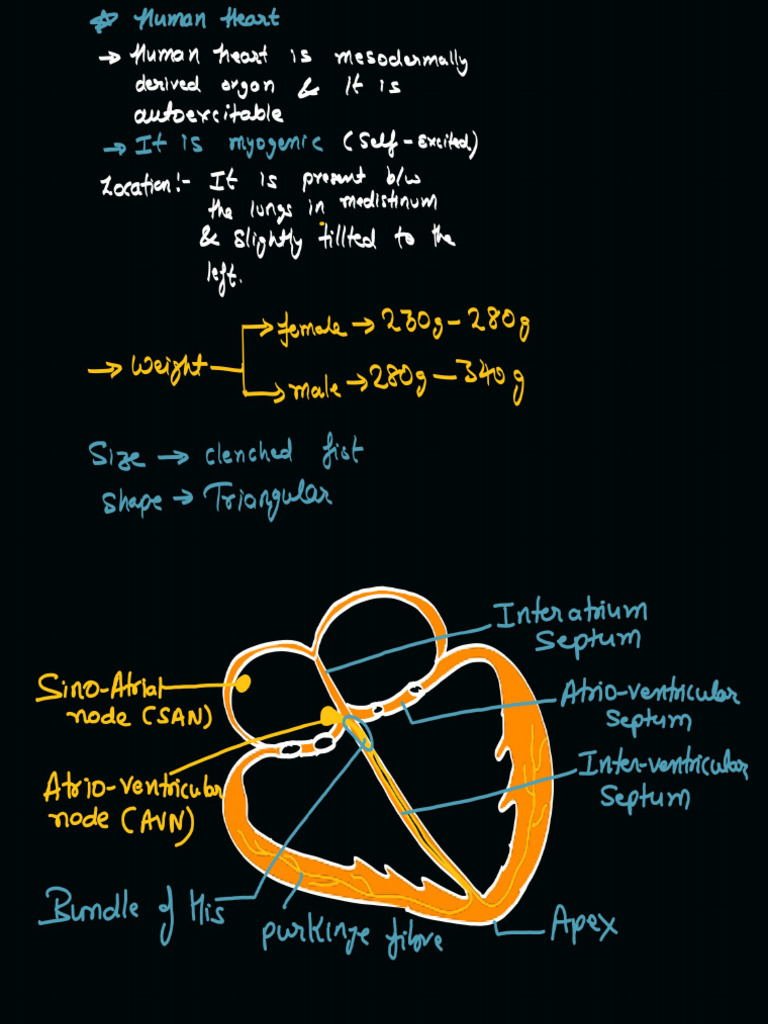 ☆ Human Heart
→ Human heart is mesodermally
derived organ & It is
autoexcitable
→ It is myogenic (self-excited)
Location:- It is present b/w
the lungs in medistinum
& slightly tillted to the
left.
→ Weight
→ female → 230g - 280g
→ male → 280g - 340g
Size → clenched fist
shape → Triangular
Interatrium
Septum
Sino-Atrial
node (SAN)
Atrio-ventricular
Septum
Inter-ventricular
Septum
Atrio-ventricular
node (AVN)
Bundle of His
purkinze fibre
Apex